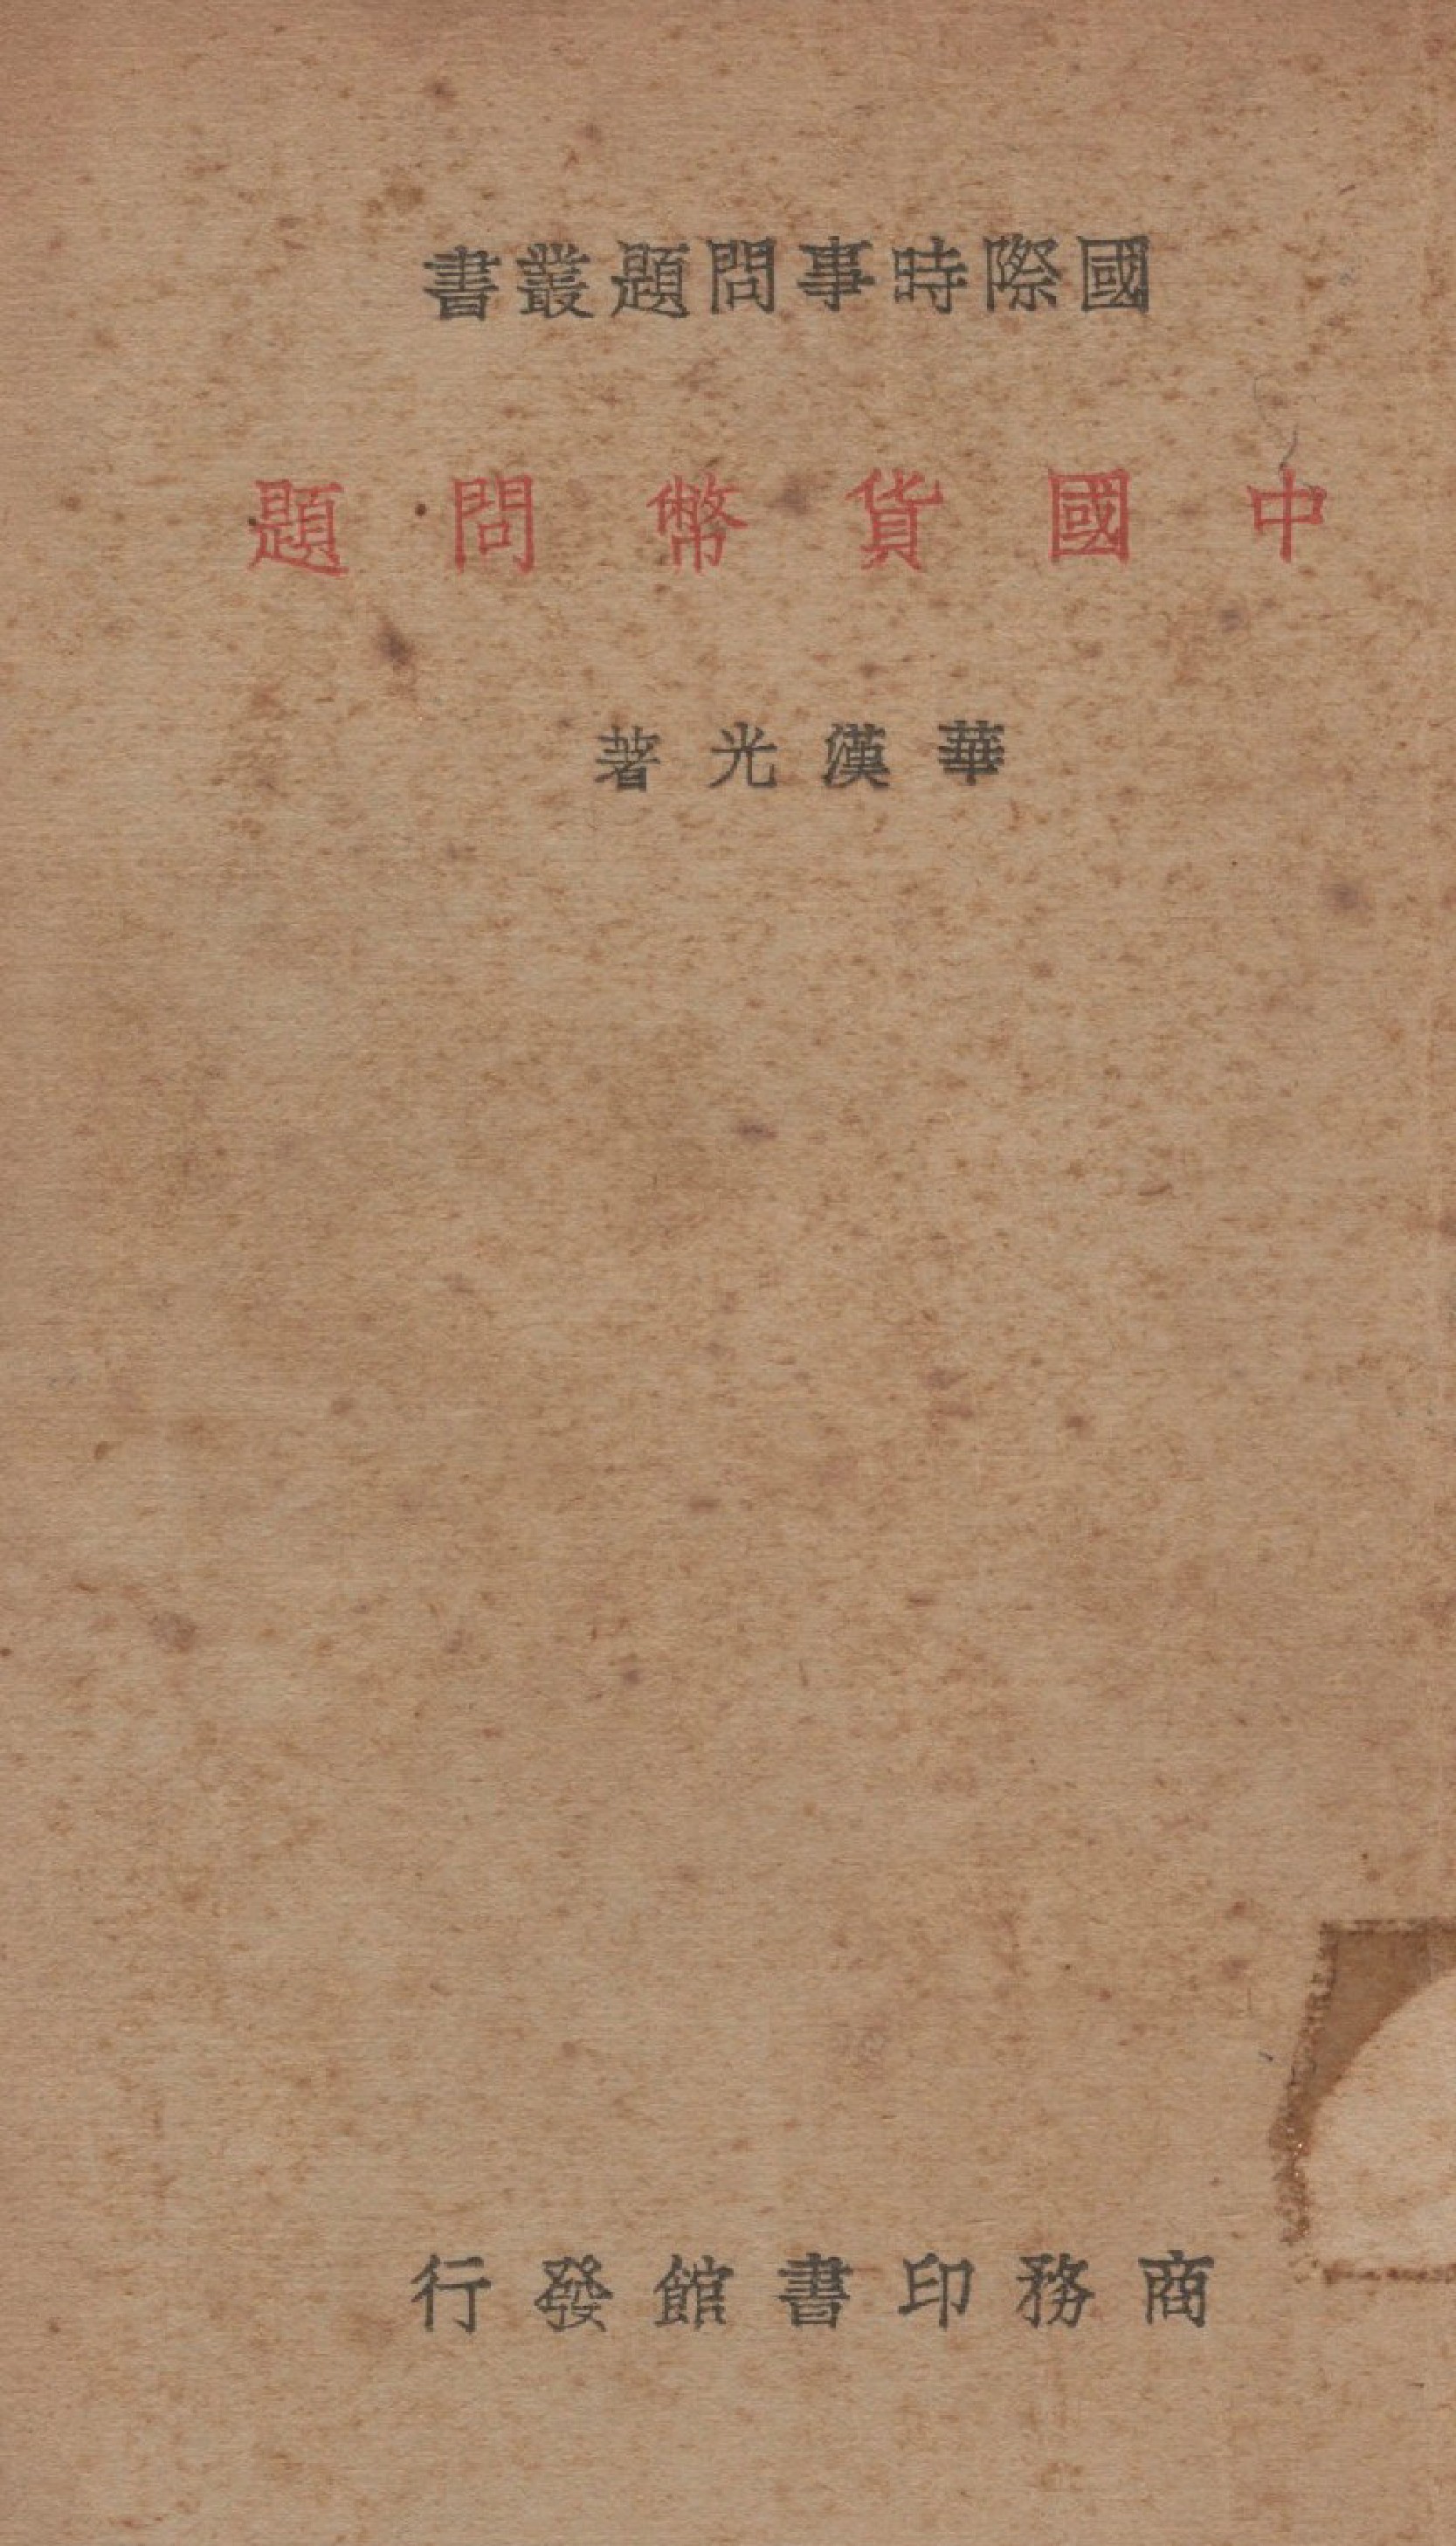 國際時事問題叢書
中國貨幣問題
華漢光著
商務印書館發行